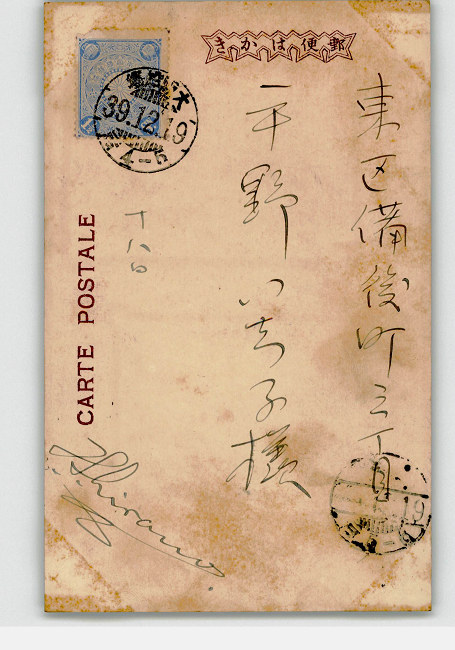 郵便はかき
東区備後町三丁目
平野いち子様
十八日
CARTE POSTALE
Hirano
39.12.19
4-5